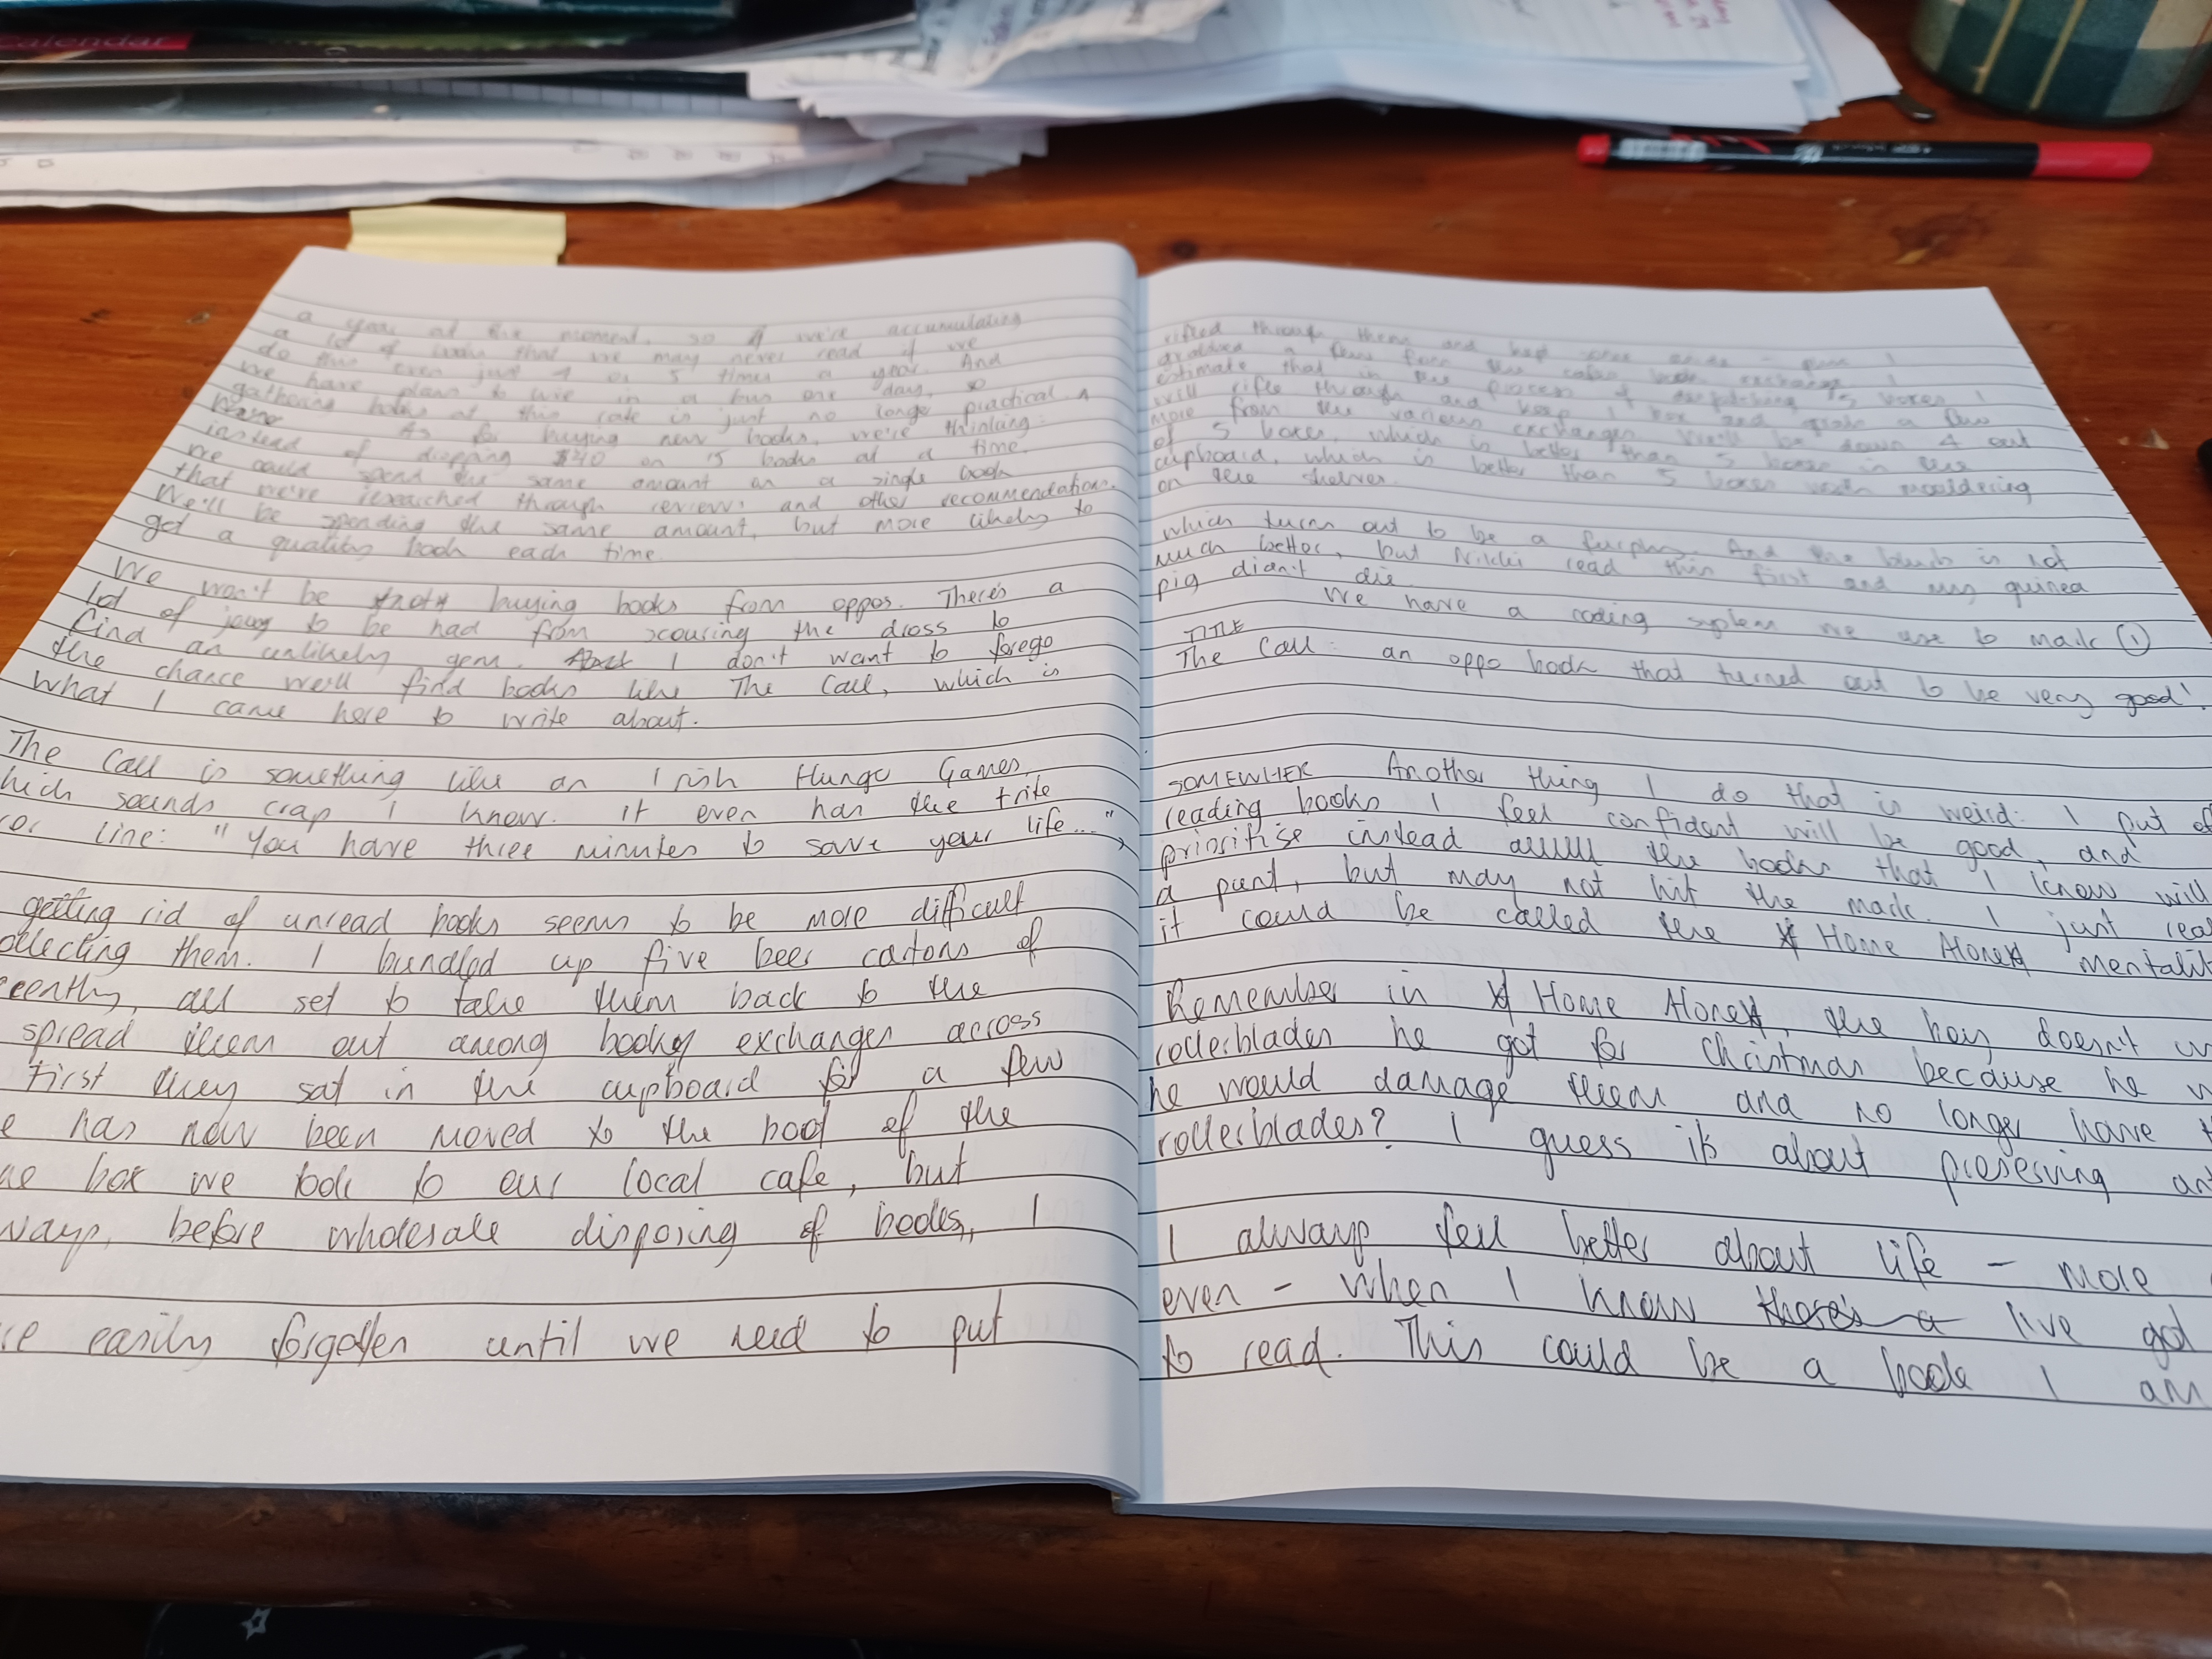 Calendar
a year at the moment, so if we're accumulating
a lot of books that we may never read if we
do this even just 4 or 5 times a year. And
we have plans to live in a bus one day, so
gathering books at this rate is just no longer practical.
As for buying new books, we're thinking:
instead of dropping $40 on 15 books at a time,
we could spend the same amount on a single book
that we've researched through reviews and other recommendations.
We'll be spending the same amount, but more likely to
get a quality book each time.
We won't be buying books from oppos. There's a
lot of joy to be had from scouring the dross to
find an unlikely gem. I don't want to forego
the chance we'll find books like The Call, which is
what I came here to write about.
The Call is something like an Irish Hunge Games,
hich sounds crap I know. It even has the trite
line: "You have three minutes to save your life..."
getting rid of unread books seems to be more difficult
ollecting them. I bundled up five beer cartons of
cently, all set to take them back to the
spread them out among book exchanges across
First they sat in the cupboard for a few
e has now been moved to the boot of the
ne box we took to our local cafe, but
ways, before wholesale disposing of books, I
re easily forgotten until we need to put
rifled through them and kept some aside - plus I
grabbed a few from the cafes book exchange. I
estimate that in the process of despatching 5 boxes I
will rifle through and keep 1 box and grab a few
more from the various exchanges. We'll be down 4 out
of 5 boxes, which is better than 5 boxes in the
cupboard, which is better than 5 boxes worth mouldering
on the shelves.
which turns out to be a furphy. And the blurb is not
much better, but Nikki read this first and my guinea
pig didn't die.
We have a coding system we use to mark ①
TITLE
The Call: an oppo book that turned out to be very good!
SOMEWHER Another thing I do that is weird: I put of
reading books I feel confident will be good, and
prioritise instead the books that I know will
a punt, but may not hit the mark. I just rea
it could be called the * Home Alone* mentalit
Remember in * Home Alone*, the boy doesn't w
rollerblades he got for Christmas because he w
he would damage them and no longer have t
rollerblades? I guess it's about preserving ant
I always feel better about life - more
even - when I know there's a I've got
to read. This could be a book I am